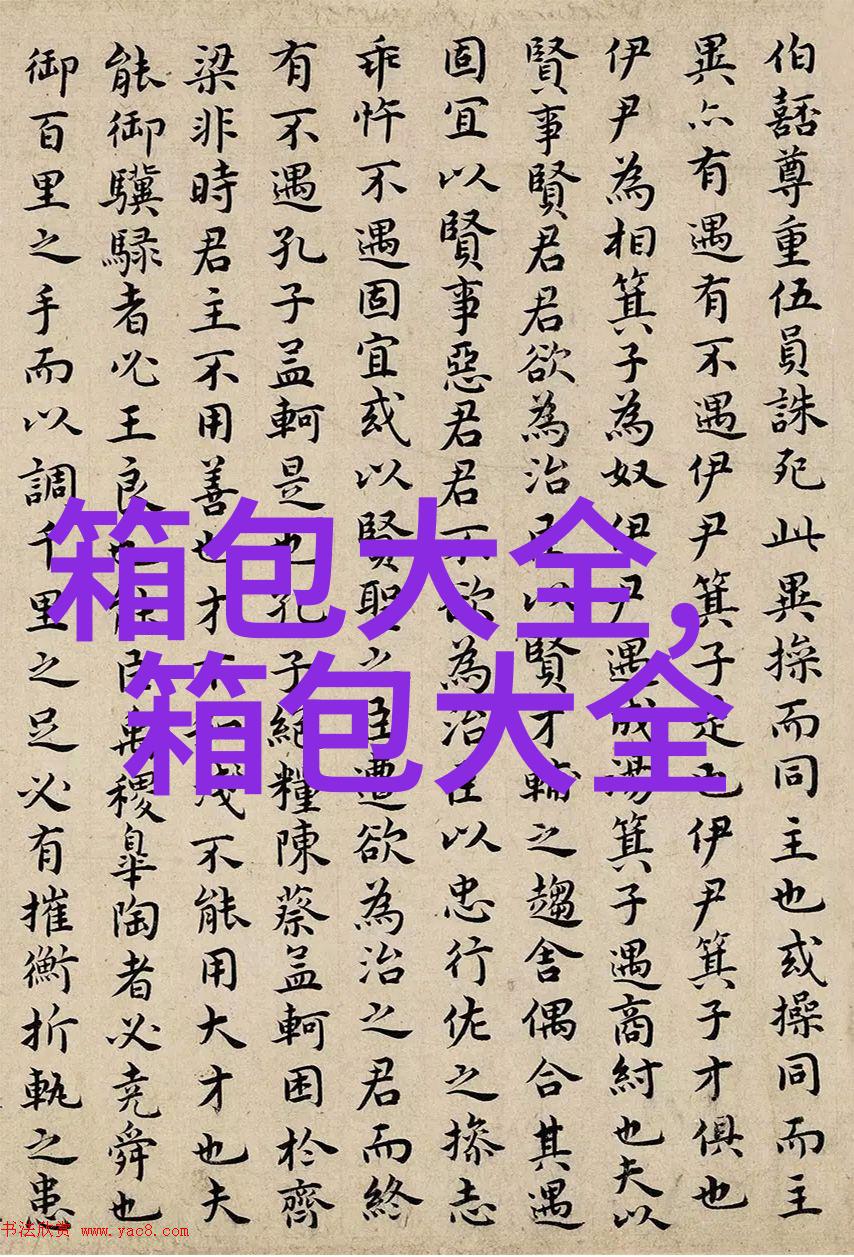 伯嚭尊重伍員誅死此異操而同主也或操同而主
異亦有遇有不遇伊尹箕子是也伊尹箕子才俱也
伊尹為相箕子為奴伊尹遇成湯箕子遇商紂也夫以
賢事賢君君欲為治臣以賢才輔之趨舍偶合其遇
固宜以賢事惡君君不欲為治臣以忠行佐之操志
乖忤不遇固宜或以賢聖之臣遭欲為治之君而終
有不遇孔子孟軻是也孔子絕糧陳蔡孟軻困於齊
梁非時君主不用善也才下知淺不能用大才也夫
能御驥騄者必王良也能臣禹稷皋陶者必堯舜也
御百里之手而以調千里之足必有摧衡折軛之患
箱包大全,
箱包大全
书法欣赏 www.yac8.com